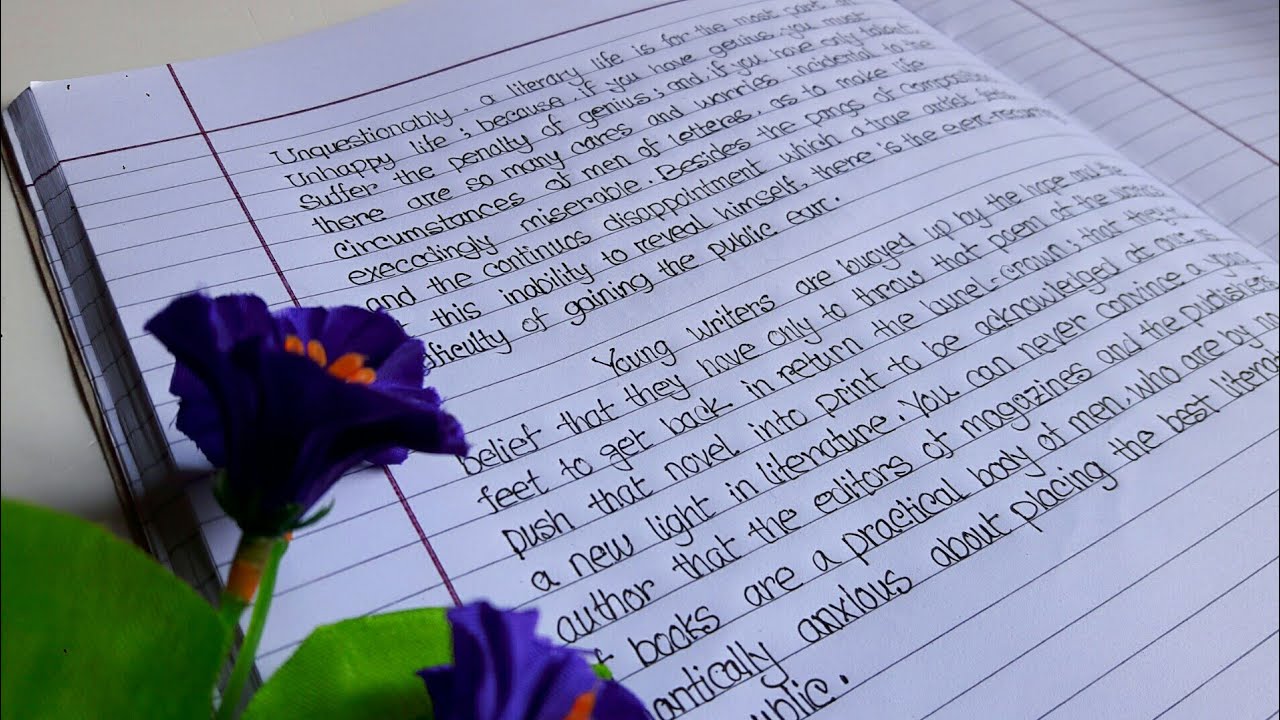 Unquestionably, a literary life is for the most part an
Unhappy life; because, if you have genius, you must
Suffer the penalty of genius; and, if you have only talent,
there are so many cares and worries incidental to the
Circumstances of men of letteres, as to make life
execodingly miserable. Besides the pangs of composition
and the continuos disappointment which a true artist feels
this inability to reveal himself, there is the ever-recurring
difficulty of gaining the public ear.
Young writers are buoyed up by the hope and the
belief that they have only to throw that poem at the world's
feet to get back in return the laurel-crown; that they
push that novel into print to be acknowledged at one
a new light in literature. You can never convince a
author that the editors of magazines and the publishers
books are a practical body of men, who are by no
antically anxious about placing the best litera
ublic.